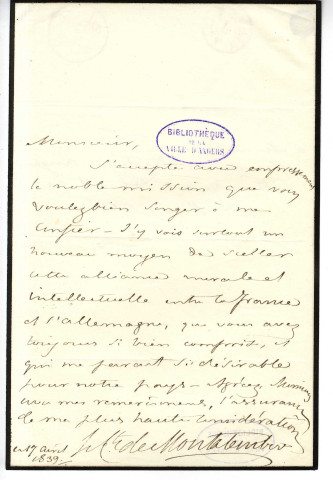 Monsieur,
BIBLIOTHÈQUE
DE LA
VILLE D'ANGERS
J'accepte avec empressement
la noble mission que vous
voulez bien songer à me
confier – J'y vois surtout un
nouveau moyen de sceller
cette alliance morale et
intellectuelle entre la France
et l'Allemagne, que vous avez
toujours si bien comprise, et
qui me parait si désirable
pour notre pays – Agréez, Monsieur
avec mes remerciemens, l'assurance
de ma plus haute considération
Cte de Montalembert
ce 17 avril
1839